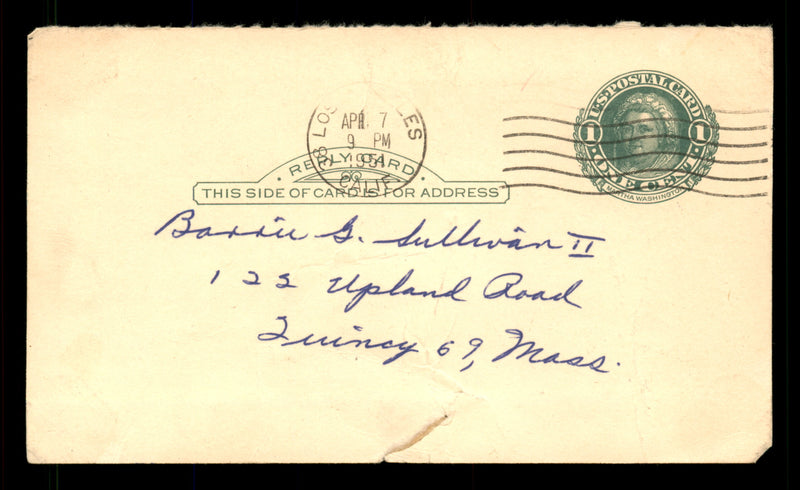 U.S. POSTAL CARD
1 1
ONE CENT
MARTHA WASHINGTON
LOS
APR 7
9 PM
1951
CALIF
REPLY CARD
THIS SIDE OF CARD IS FOR ADDRESS
Barrie G. Sullivan II
122 Upland Road
Quincy 69, Mass.